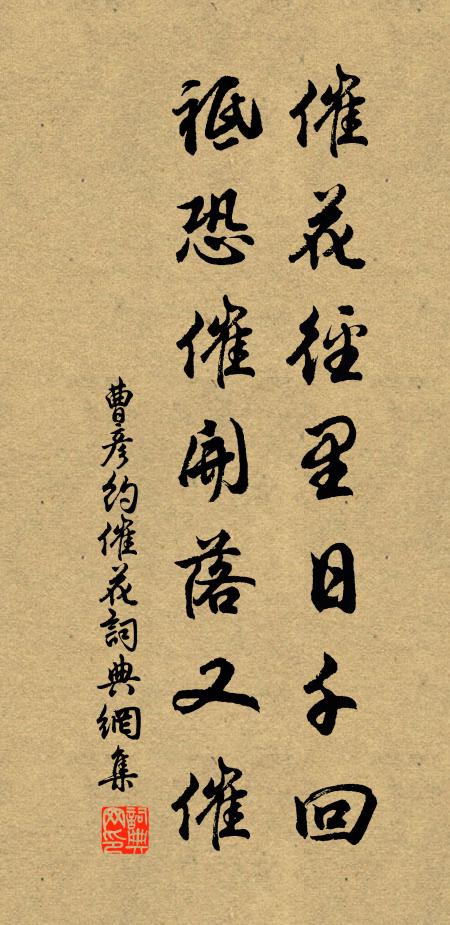 催花徑里日千回
祗恐催開落又催
曹彦約催花詞典網集
詞典网印